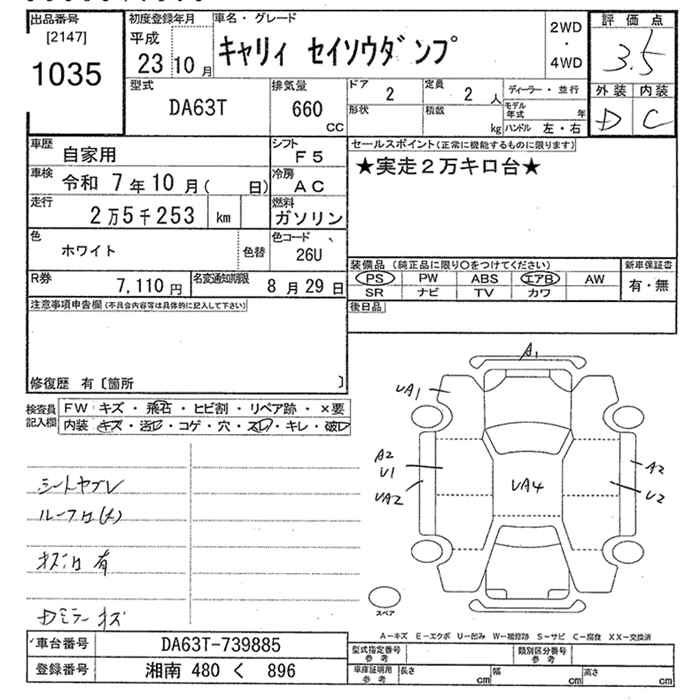 出品番号 初度登録年月 車名・グレード 2WD・4WD 評価点
[2147] 平成 キャリィ セイソウダンプ 3.5
1035 23 10月
型式 排気量 ドア 定員 ディーラー・並行 外装 内装
DA63T 660 CC 2 2人 モデル年式 年 D C
形状 積載 kg ハンドル 左・右
車歴 自家用 シフト F5 セールスポイント(正常に機能するものに限ります)
車検 令和 7年10月( 日) 冷房 AC ★実走2万キロ台★
走行 2万5千253 km 燃料 ガソリン
色 ホワイト 色替 色コード 26U
装備品 (純正品に限り○をつけてください) 新車保証書
R券 7,110円 名変通知期限 8月29日 PS PW ABS エアB AW 有・無
SR ナビ TV カワ
注意事項申告欄(不具合内容等は具体的に記入して下さい) 後日品
修復歴 有〔箇所 〕
検査員記入欄 FW キズ・飛石・ヒビ割・リペア跡・×要
内装 キズ・汚レ・コゲ・穴・スレ・キレ・破レ
A1
UA1
A2
U1
UA2
UA4
A2
U2
シートヤブレ
有
Dミラーキズ
スペア
A−キズ E−エクボ U−凹み W−補修跡 S−サビ C−腐食 XX−交換済
車台番号 DA63T-739885 型式指定番号 参考 類別区分番号 参考
登録番号 湘南 480 く 896 車庫証明用 参考 長さ cm 幅 cm 高さ cm